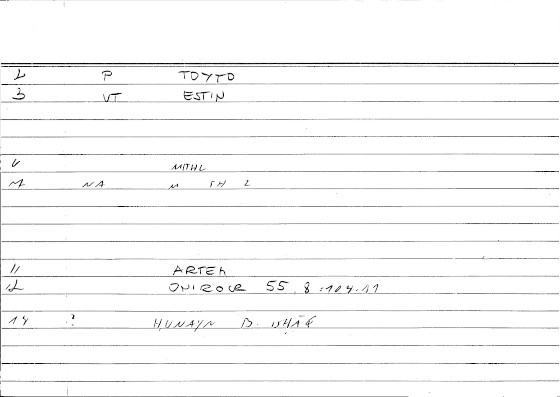 2 P TOYTO
3 VT ESTIN
V MITHL
M NA M TH L
11 ARTEM
12 ONIROCR 55,8 = 104.11
14 ? HUNAYN B. ISHĀQ